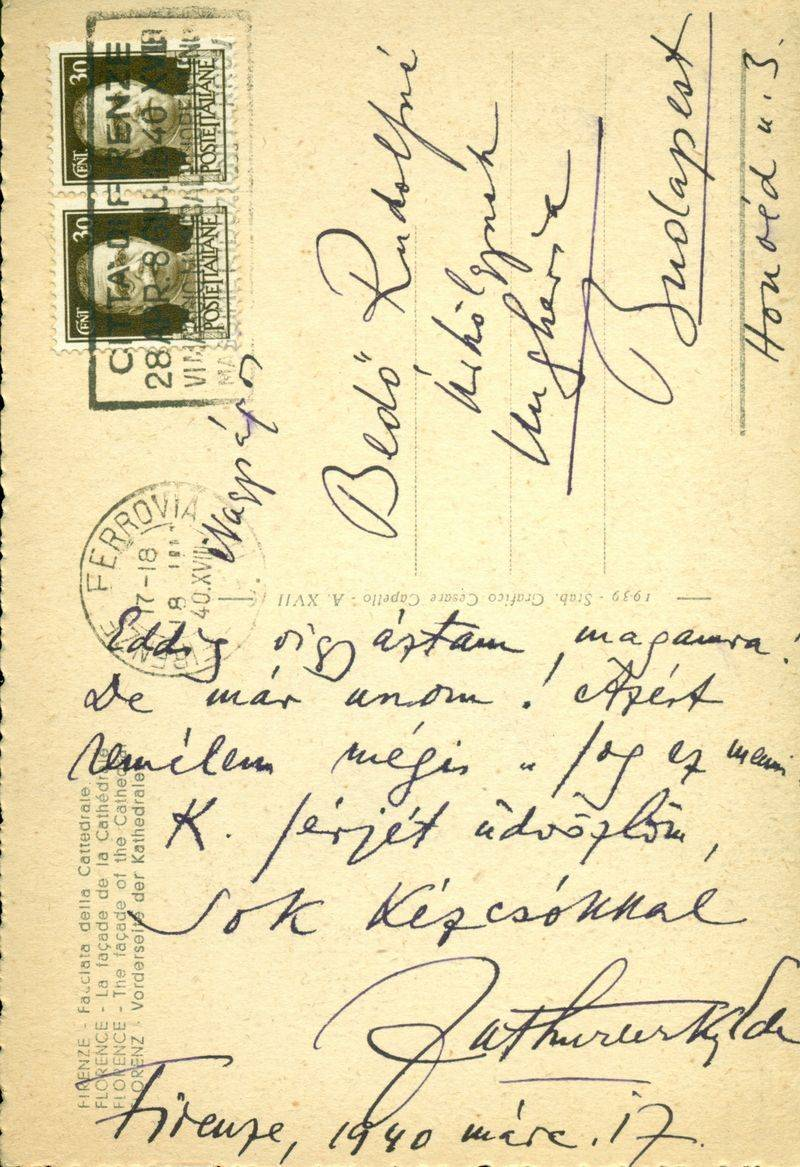 30
CENT.
POSTE ITALIANE
30
CENT.
POSTE ITALIANE
CITTA DI FIRENZE
28 APR. 8 GIU. 1940 XVIII
VI MAGGIO MUSICALE
FERROVIA
17-18
18
40.XVIII
FIRENZE
Nagys ágos
Bedő Rudolfné
úrhölgynek
Ungheria
Budapest
Honvéd u. 3.
1939 - Stab. Grafico Cesare Capello - A. XVII
Eddig vigyáztam magamra!
De már unom! Azért
remélem mégis „fog ez menni
K. férjét üdvözlöm,
Sok kézcsókkal
Zathureczky Ede
Firenze, 1940 márc. 17.
FIRENZE - Facciata della Cattedrale
FLORENCE - La façade de la Cathédrale
FLORENCE - The façade of the Cathed
FLORENZ - Vorderseite der Kathedrale